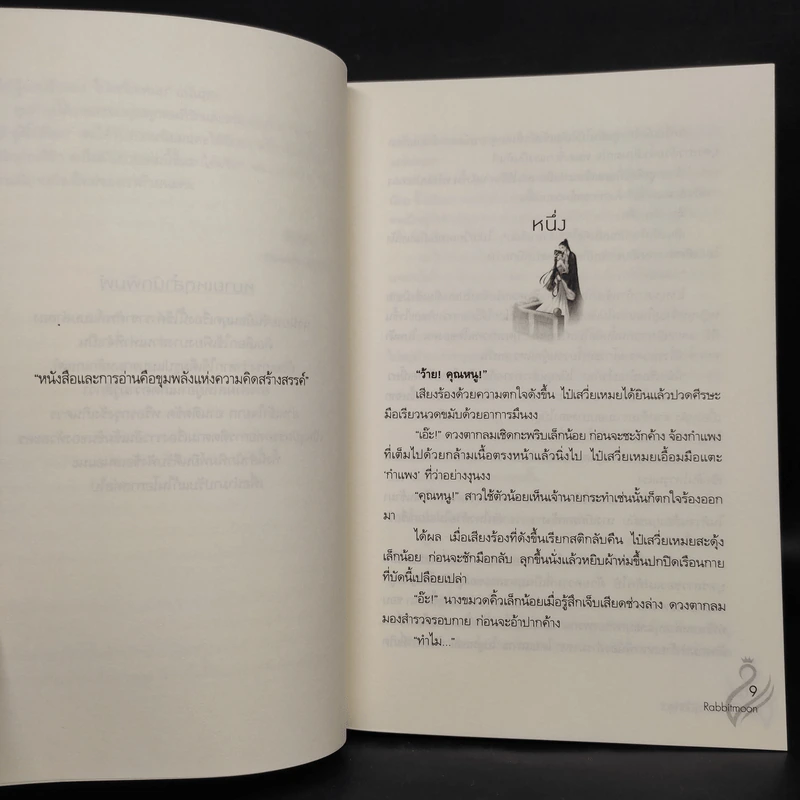 "หนังสือและการอ่านคือขุมพลังแห่งความคิดสร้างสรรค์"
หนึ่ง
"ว้าย! คุณหนู!"
เสียงร้องด้วยความตกใจดังขึ้น ไป๋เสวี่ยเหมยได้ยินแล้วปวดศีรษะ
มือเรียวนวดขมับด้วยอาการมึนงง
"เอ๊ะ!" ดวงตากลมเชิดกะพริบเล็กน้อย ก่อนจะชะงักค้าง จ้องกำแพง
ที่เต็มไปด้วยกล้ามเนื้อตรงหน้าแล้วนิ่งไป ไป๋เสวี่ยเหมยเอื้อมมือแตะ
'กำแพง' ที่ว่าอย่างงุนงง
"คุณหนู!" สาวใช้ตัวน้อยเห็นเจ้านายกระทำเช่นนั้นก็ตกใจร้องออก
มา
ได้ผล เมื่อเสียงร้องที่ดังขึ้นเรียกสติกลับคืน ไป๋เสวี่ยเหมยสะดุ้ง
เล็กน้อย ก่อนจะชักมือกลับ ลุกขึ้นนั่งแล้วหยิบผ้าห่มขึ้นปกปิดเรือนกาย
ที่บัดนี้เปลือยเปล่า
"อ๊ะ!" นางขมวดคิ้วเล็กน้อยเมื่อรู้สึกเจ็บเสียดช่วงล่าง ดวงตากลม
มองสำรวจรอบกาย ก่อนจะอ้าปากค้าง
"ทำไม..."
9
Rabbitmoon